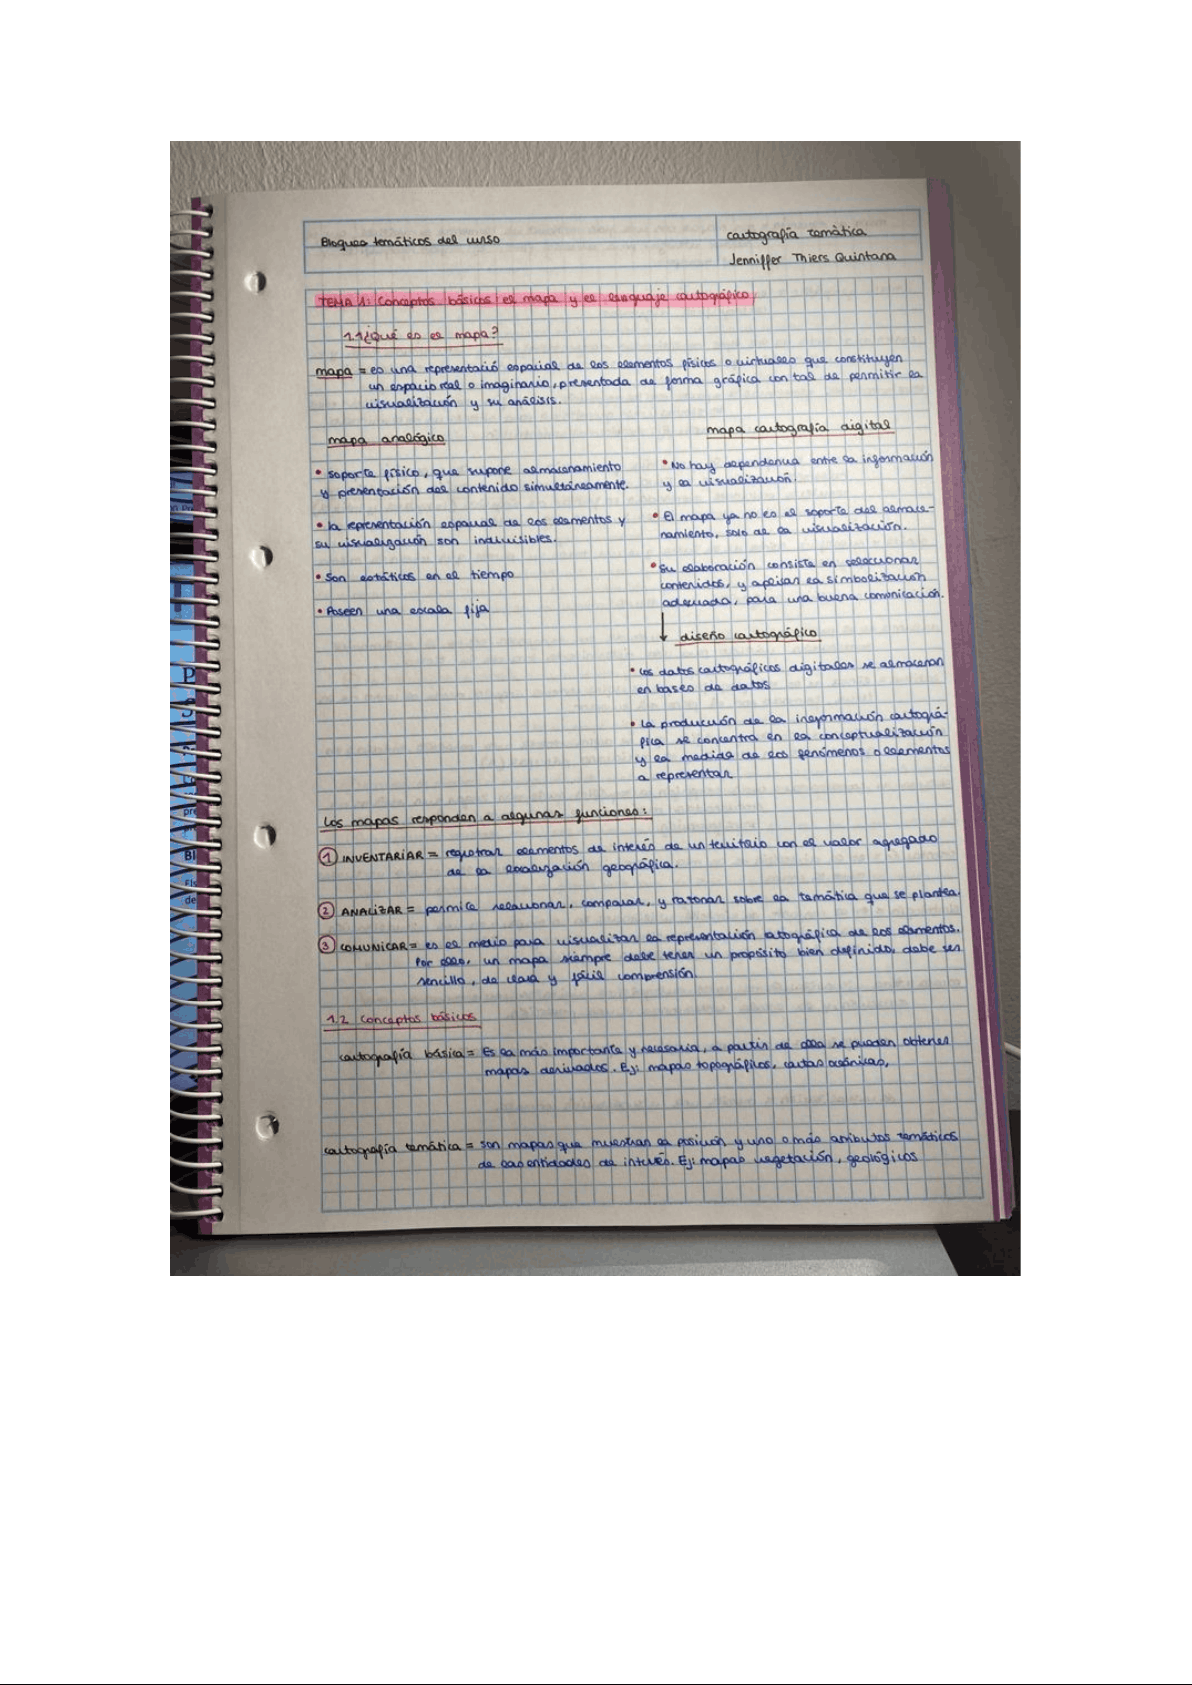 Bloques temáticos del curso
cartografía temàtica
Jenniffer Thiers Quintana
TEMA 1: Conceptos básicos el mapa y el lenguaje cartográfico
1.1 ¿Qué es el mapa?
mapa = es una representació espacial de los elementos físicos o virtuales que constituyen
un espacio real o imaginario, presentada de forma gráfica con tal de permitir la
visualización y su análisis.
mapa analógico
• soporte físico, que supone almacenamiento
y presentación del contenido simultáneamente.
• la representación espacial de los elementos y
su visualización son indivisibles.
• Son estáticos en el tiempo
• Poseen una escala fija
mapa cartografía digital
• No hay dependencia entre la información
y la visualización.
• El mapa ya no es el soporte del almace-
namiento, solo de la visualización.
• Su elaboración consiste en seleccionar
contenidos, y aplicar la simbolización
adecuada, para una buena comunicación.
↓ diseño cartográfico
• Los datos cartográficos digitales se almacenan
en bases de datos
• La producción de la información cartográ-
fica se concentra en la conceptualización
y la medida de los fenómenos o elementos
a representar
Los mapas responden a algunas funciones:
1 INVENTARIAR = registrar elementos de interés de un territorio con el valor agregado
de la localización geográfica.
2 ANALIZAR = permite relacionar, comparar, y razonar sobre la temática que se plantea.
3 COMUNICAR = es el medio para visualizar la representación catográfica de los elementos.
Por ello, un mapa siempre debe tener un propósito bien definido, debe ser
sencillo, de clara y fácil comprensión.
1.2 Conceptos básicos
cartografía básica = Es la más importante y necesaria, a partir de ella se pueden obtener
mapas derivados. Ej: mapas topográficos, cartas oceánicas,
cartografía temática = son mapas que muestran la posición y uno o más atributos temáticos
de las entidades de interés. Ej: mapas vegetación, geológicos